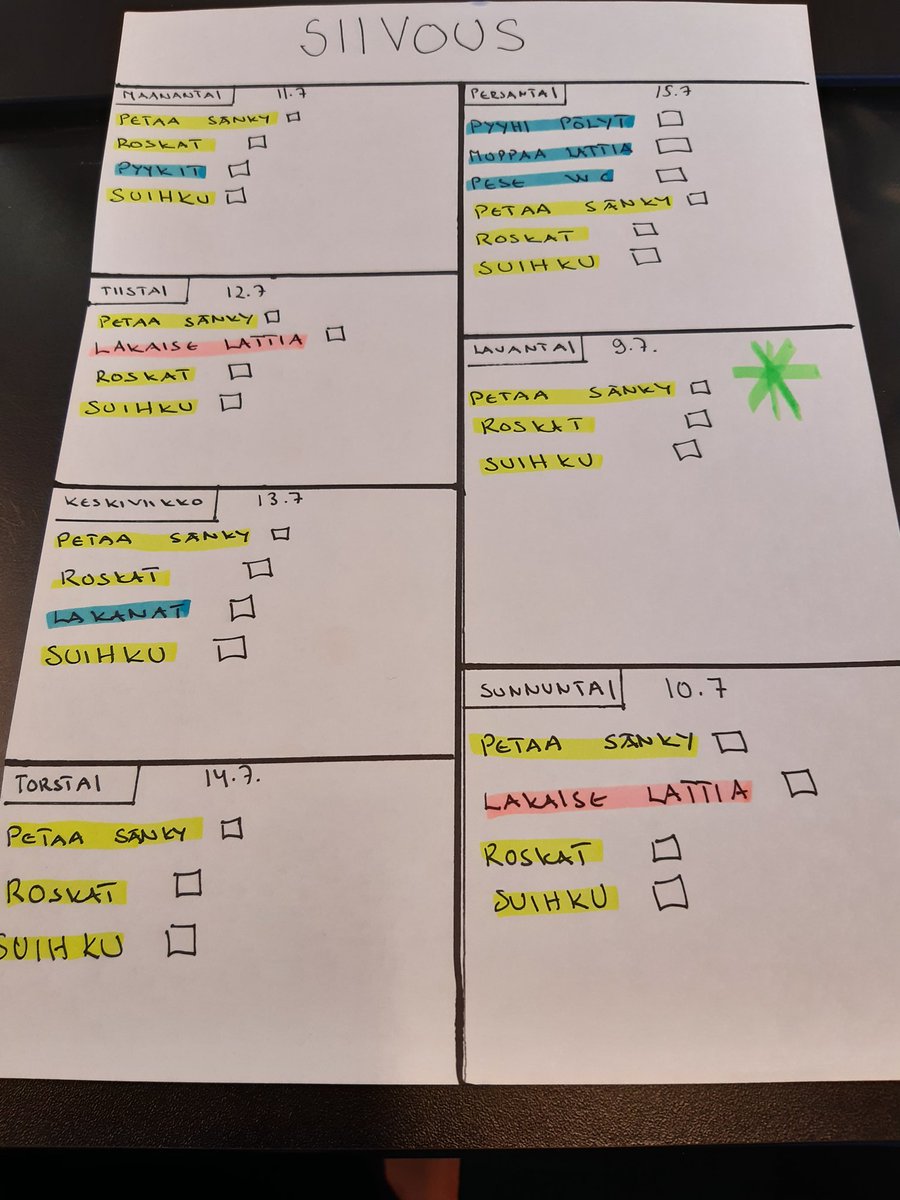 SIIVOUS
MAANANTAI 11.7
PETAA SÄNKY
ROSKAT
PYYKIT
SUIHKU
TIISTAI 12.7
PETAA SÄNKY
LAKAISE LATTIA
ROSKAT
SUIHKU
KESKIVIIKKO 13.7
PETAA SÄNKY
ROSKAT
LAKANAT
SUIHKU
TORSTAI 14.7.
PETAA SÄNKY
ROSKAT
SUIHKU
PERJANTAI 15.7
PYYHI PÖLYT
MOPPAA LATTIA
PESE WC
PETAA SÄNKY
ROSKAT
SUIHKU
LAUANTAI 9.7.
PETAA SÄNKY
ROSKAT
SUIHKU
SUNNUNTAI 10.7
PETAA SÄNKY
LAKAISE LATTIA
ROSKAT
SUIHKU